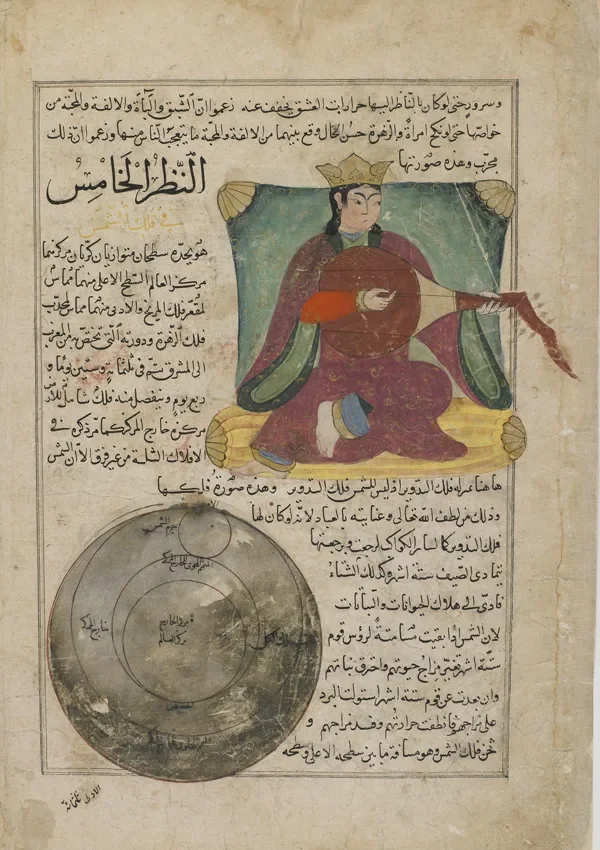 وسرور حتى لو كان بالناظر اليها حرارات العشق يخفف عنه زعموا ان الشبق والباٰة والالفة والمحبة من
خواصها حتى لو نكح امراة والزهرة حسن الحال وقع بينهما من الالفة والمحبة ما يتعجب الناس منها وزعموا ان ذلك
مجرب وهذه صورتها
النظر الخامس
فى فلك الشمس
هو يحده سطحان متوازيان كريان مركزهما
مركز العالم السطح الاعلى منهما مماس
لمقعر فلك المريخ والادنى منهما مماس لمحدب
فلك الزهرة ودورته التى تختص به من المغرب
الى المشرق تتم فى ثلثمائة وستين يوما و
ربع يوم وينفصل منه فلك شامل للارض
مركزه خارج المركز كما مر ذكره فى
الافلاك الثلثة من غير فرق الا ان الشمس
هاهنا بمنزلة فلك التدوير اذ ليس للشمس فلك التدوير وهذه صورة فلكها
وذلك من لطف الله تعالى وعنايته بالعباد لانه لو كان لها
فلك التدوير كما لسائر الكواكب لرجعت فى رجعتها
يتمادى الصيف ستة اشهر وكذلك الشتاء
فادى الى هلاك الحيوانات والنباتات
لان الشمس اذا بقيت مسامتة لرؤس قوم
ستة اشهر تغير مزاج حيوتهم واحترق نباتهم
وان بعدت عن قوم ستة اشهر استولت البرد
على مزاجهم فانطفت حرارتهم وفسد مزاجهم و
ثخن فلك الشمس وهو مسافة ما بين سطحه الاعلى وسطحه
جرم الشمس
خارج المركز
مركز الخارج
مركز العالم
الادنى ثلثمائة